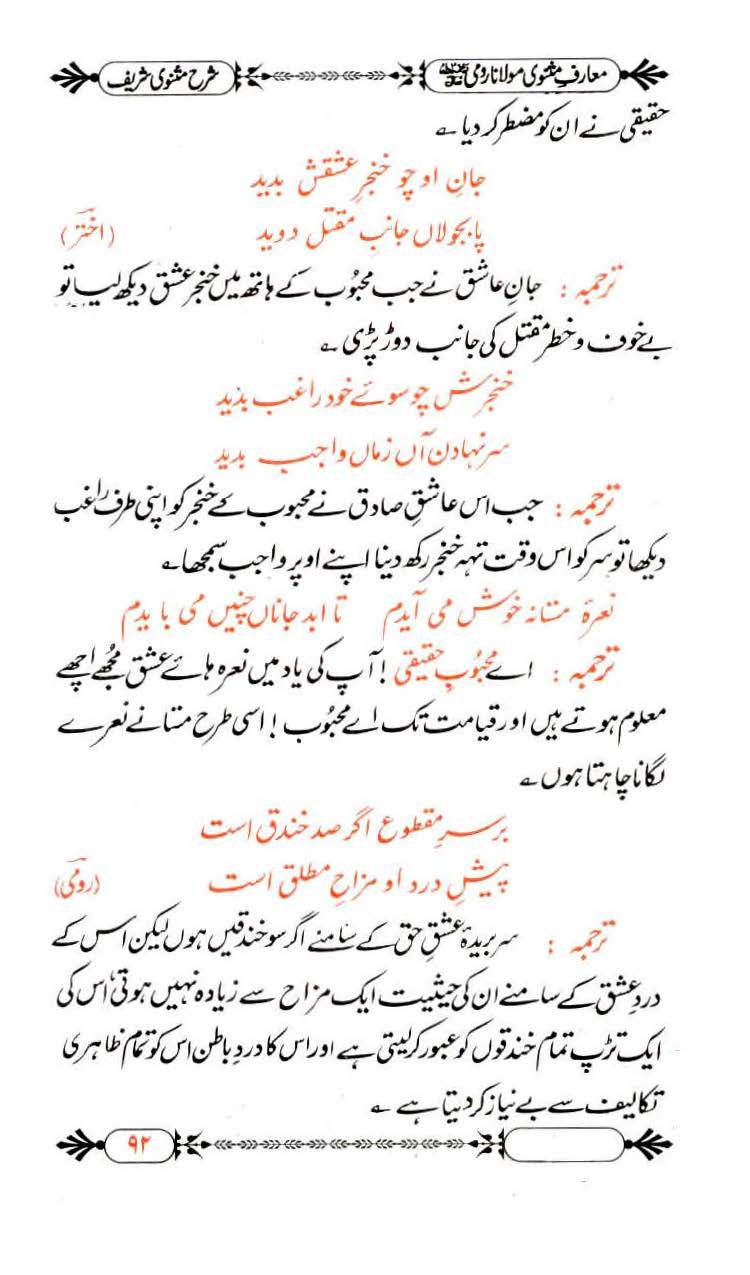 معارفِ مثنوی مولانا رومی شرح مثنوی شریف
حقیقی نے ان کو مضطر کر دیا ؎
جانِ او چو خنجرِ عشقش بدید
پا بجولاں جانبِ مقتل دوید (اخترؔ)
ترجمہ : جانِ عاشق نے جب محبُوب کے ہاتھ میں خنجرِ عشق دیکھ لیا تو
بے خوف و خطر مقتل کی جانب دوڑ پڑی ؎
خنجرش چو سوئے خود راغب بدید
سر نہادن آں زماں واجب بدید
ترجمہ : جب اس عاشقِ صادق نے محبوب کے خنجر کو اپنی طرف راغب
دیکھا تو سر کو اس وقت تہہ خنجر رکھ دینا اپنے اوپر واجب سمجھا ؎
نعرۂ مستانہ خوش می آیدم تا ابد جاناں چنیں می بایدم
ترجمہ : اے محبُوبِ حقیقی ! آپ کی یاد میں نعرہ ہائے عشق مُجھے اچھے
معلوم ہوتے ہیں اور قیامت تک اے محبُوب ! اسی طرح مستانے نعرے
لگانا چاہتا ہوں ؎
بر سرِ مقطوع اگر صد خندق است
پیشِ درد او مزاحِ مطلق است (رومیؔ)
ترجمہ : سر بریدۂ عشقِ حق کے سامنے اگر سو خندقیں ہوں لیکن اس کے
دردِ عشق کے سامنے ان کی حیثیت ایک مزاح سے زیادہ نہیں ہوتی، اس کی
ایک تڑپ تمام خندقوں کو عبور کر لیتی ہے اور اس کا دردِ باطن اس کو تمام ظاہری
تکالیف سے بے نیاز کر دیتا ہے ؎
۹۲